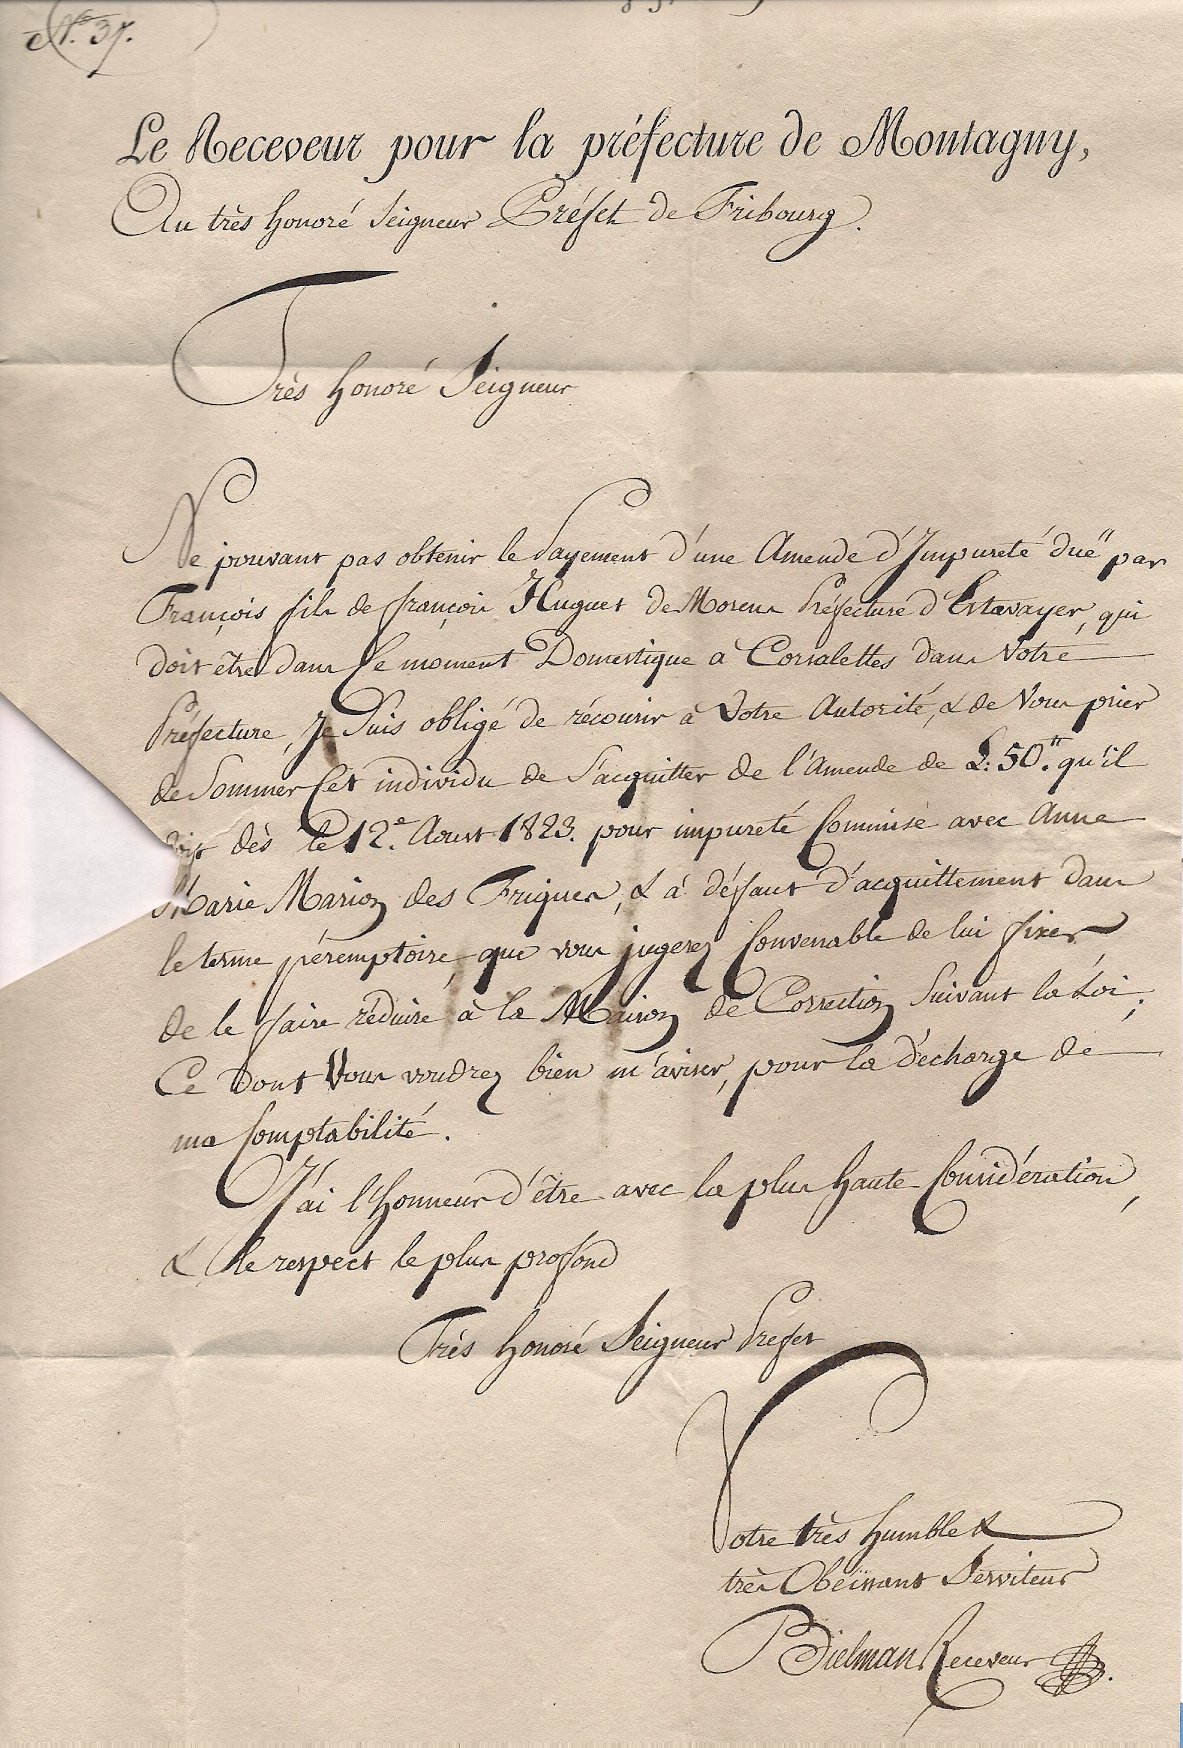 N.º 37.
Le Receveur pour la préfecture de Montagny,
Au très honoré Seigneur Préfet de Fribourg.
Très honoré Seigneur
Ne pouvant pas obtenir le Payement d'une Amende d'Impureté duë par
François fils de françois Huguet de Morens Préfecture d'Estavayer, qui
doit être dans Ce moment Domestique à Corsalettes dans Votre
Préfecture, Je Suis obligé de récourir à Votre Autorité, & de Vous prier
de Sommer Cet individu de S'acquitter de l'Amende de L: 50.tt qu'il
doit dès le 12.e Aoust 1823. pour impureté Commise avec Anne
Marie Marion des Friques, & à défaut d'acquittement dans
le terme péremptoire que vous jugerez Convenable de lui fixer
de le faire réduire à la Maison de Correction Suivant la Loi;
Ce Dont Vous voudrez bien m'aviser, pour la décharge de
ma Comptabilité.
J'ai l'honneur d'être avec la plus haute Considération,
& le respect le plus profond
Très honoré Seigneur Prefet
Votre très humble &
très Obeïssant Serviteur
Bielman Receveur